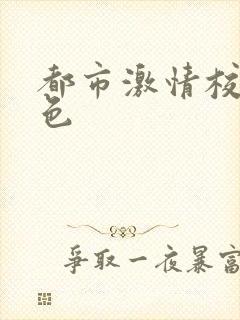 都市激情校
色
爭取一夜暴富